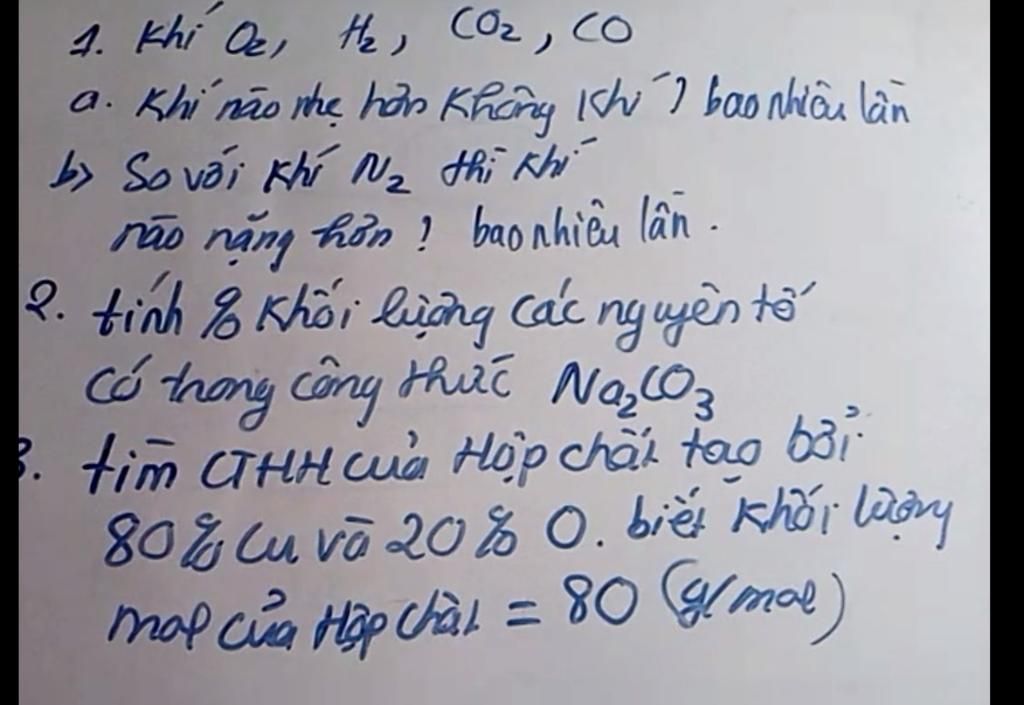 1. Khí O₂, H₂, CO₂, CO
a. Khí nào nhẹ hơn không khí? bao nhiêu lần
b> So với khí N₂ thì khí
nào nặng hơn? bao nhiêu lần.
2. tính % khối lượng các nguyên tố
có trong công thức Na₂CO₃
3. tìm CTHH của Hợp chất tạo bởi
80% Cu và 20% O. biết khối lượng
mol của Hợp chất = 80 (g/mol)